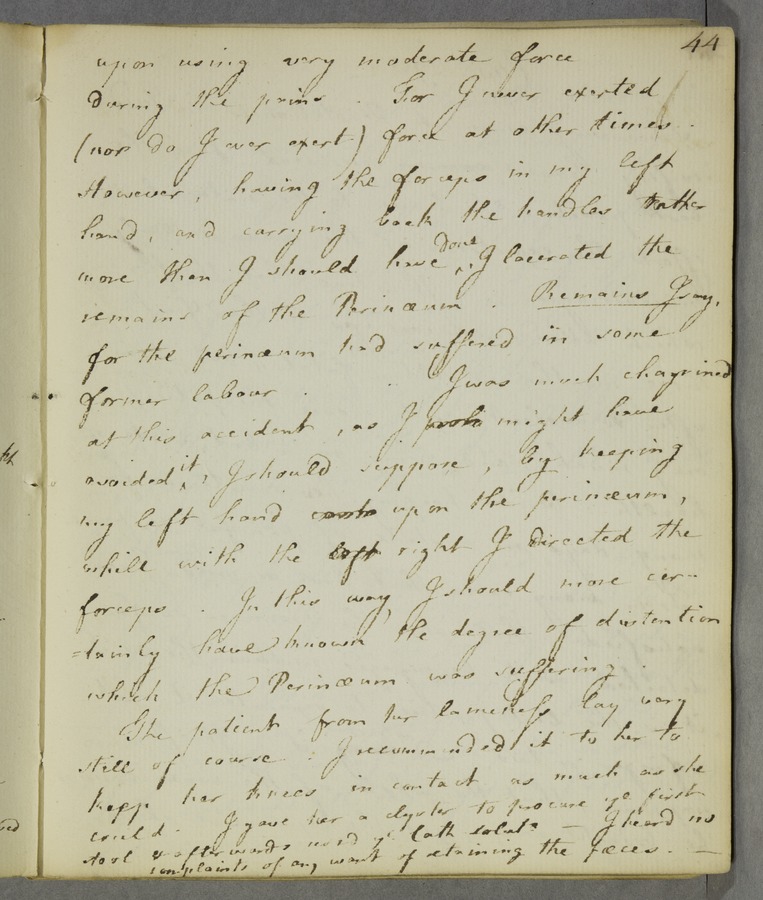 44
upon using very moderate force
during the pains . For I never exerted
(nor do I ever exert) force at other times .
However , having the forceps in my left
hand , and carrying back the handles rather
more than I should have done I lacerated the
remains of the Perinæum . Remains I say,
for the perinæum had suffered in some
former labour . I was much chagrined
at this accident , as I might have
avoided it, I should suppose , by keeping
my left hand upon the perinæum ,
while with the left right I directed the
forceps . In this way I should more cer-
=tainly have known the degree of distention
which the Perinæum was suffering .
The patient from her lameness lay very
still of course : I recommended it to her to
keep her knees in contact as much as she
could . I gave her a clyster to procure ye first
stool & afterwards used ye cath — I heard no
complaints of any want of retaining the fæces . —